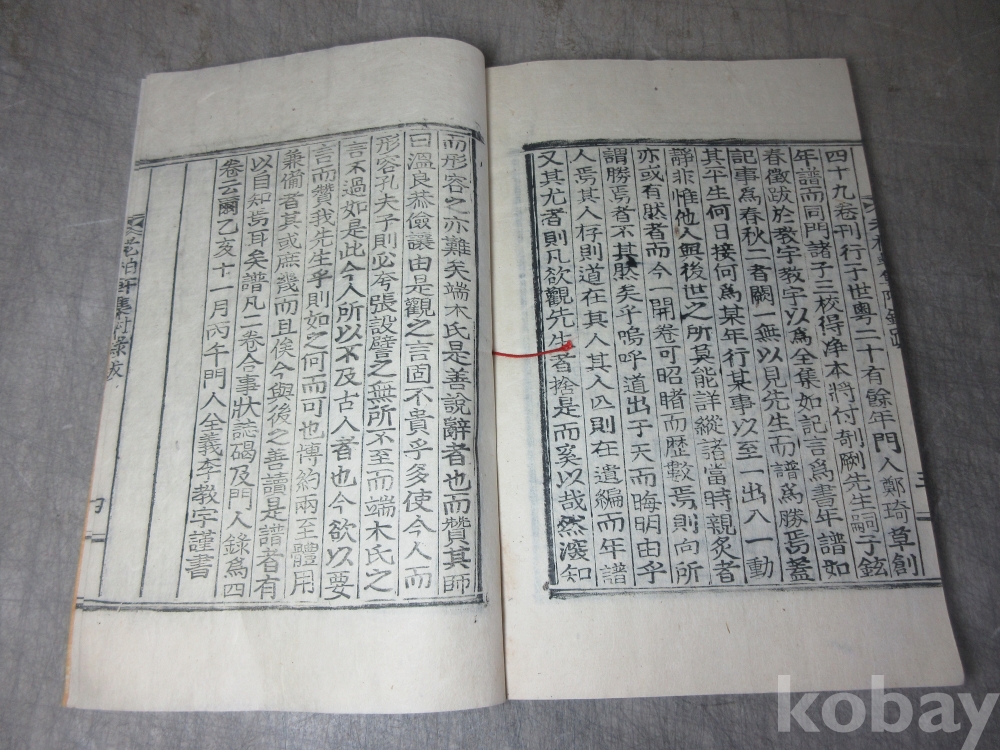 四十九卷刊行于世粤二十有餘年門人鄭琦草創
年譜而同門諸子三校得淨本將付剞劂先生嗣子鉉
春徵跋於敎宇敎宇以爲全集如記言爲書年譜如
記事爲春秋二者闕一無以見先生而譜爲勝焉蓋
其平生何日接何爲某年行某事以至一出入一動
靜非惟他人與後世之所莫能詳縱諸當時親炙者
亦或有然者而今一開卷可昭睹而歷數焉則向所
謂勝焉者不其然矣乎嗚呼道出于天而晦明由乎
人焉其人存則道在其人其人亾則在遺編而年譜
又其尤者則凡欲觀先生者捨是而奚以哉然深知
而形容之亦難矣端木氏是善說辭者也而贊其師
曰溫良恭儉讓由是觀之言固不貴乎多使今人而
形容孔夫子則必夸張設譬之無所不至而端木氏之
言不過如是此今人所以不及古人者也今欲以要
言而贊我先生乎則如之何而可也博約兩至體用
兼備者其或庶幾而且俟今與後之善讀是譜者有
以自知焉耳矣譜凡二卷合事狀誌碣及門人錄爲四
卷云爾乙亥十一月丙午門人全義李敎宇謹書
老柏軒集附錄跋
四
kobay